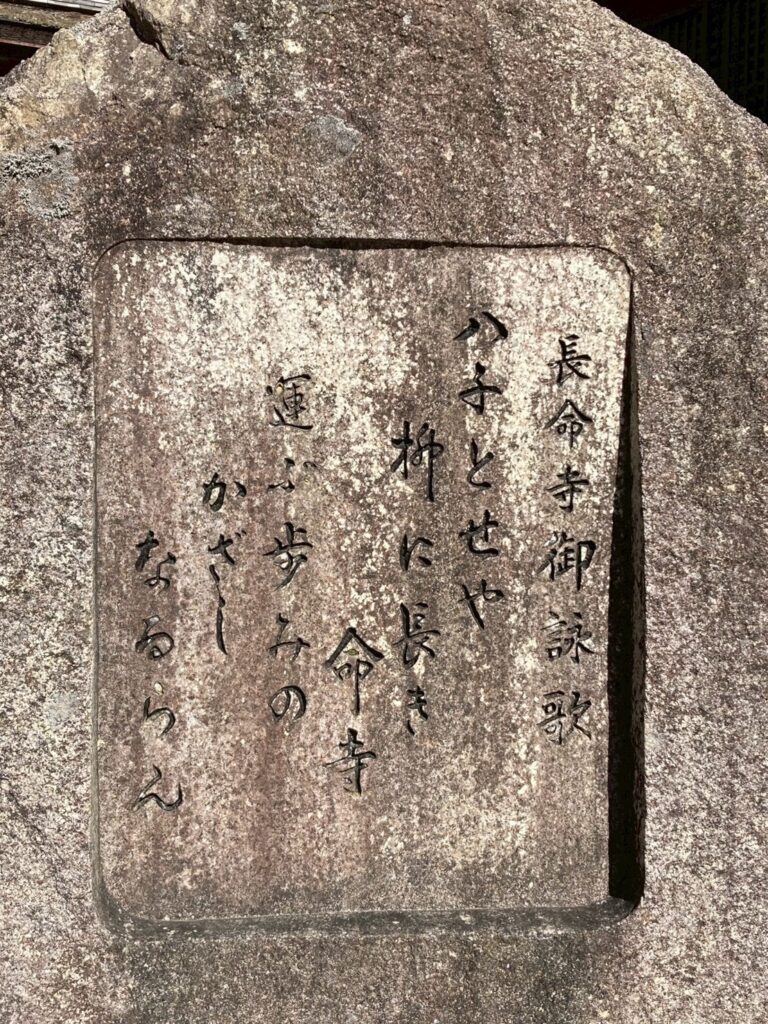 長命寺御詠歌
八千とせや
柳に長き
命寺
運ぶ歩みの
かざし
なるらん